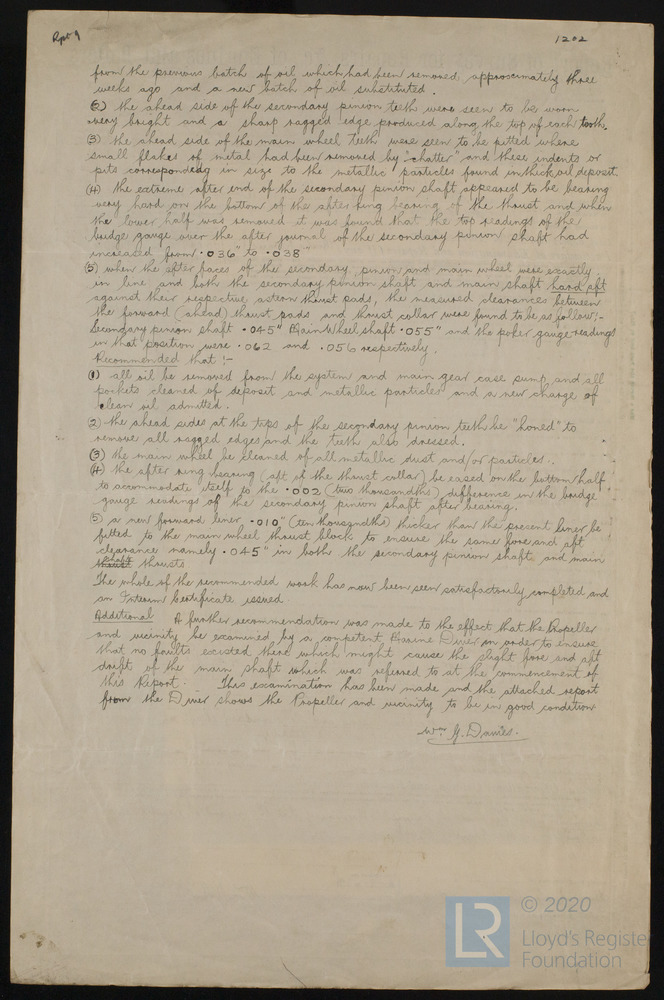 Rpt 9
1202
from the previous batch of oil which had been removed, approximately three
weeks ago and a new batch of oil substituted.
(2) the ahead side of the secondary pinion teeth were seen to be worn
very bright and a sharp ragged edge produced along the top of each tooth.
(3) the ahead side of the main wheel teeth were seen to be pitted where
small flakes of metal had been removed by "chatter" and these indents or
pits corresponded in size to the metallic particles found in thick oil deposit.
(4) the extreme after end of the secondary pinion shaft appeared to be bearing
very hard on the bottom of the after ring bearing of the thrust, and when
the lower half was removed it was found that the top readings of the
bridge gauge over the after journal of the secondary pinion shaft had
increased from .036" to .038"
(5) when the after faces of the secondary pinion and main wheel were exactly
in line and both the secondary pinion shaft and main shaft hard aft
against their respective astern thrust pads, the measured clearances between
the forward (ahead) thrust pads and thrust collar were found to be as follow:-
Secondary pinion shaft .045" Main Wheel shaft .055" and the poker gauge readings
in that position were .062 and .056 respectively.
Recommended that :-
(1) all oil be removed from the system and main gear case sump, and all
pockets cleaned of deposit and metallic particles and a new charge of
clean oil admitted.
(2) the ahead sides at the tips of the secondary pinion teeth be "honed" to
remove all ragged edges and the teeth also dressed.
(3) the main wheel be cleaned of all metallic dust and/or particles.
(4) the after ring bearing (aft of the thrust collar) be eased on the bottom half
to accommodate itself to the .002 (two thousandths) difference in the bridge
gauge readings of the secondary pinion shaft after bearing.
(5) a new forward liner .010" (ten thousandths) thicker than the present liner be
fitted to the main wheel thrust block to ensure the same fore and aft
clearance namely .045" in both the secondary pinion shaft and main
shaft thrusts
The whole of the recommended work has now been seen satisfactorily completed and
an Interim Certificate issued.
Additional A further recommendation was made to the effect that the Propeller
and vicinity be examined by a competent Marine Diver in order to ensure
that no faults existed there which might cause the slight fore and aft
drift of the main shaft which was referred to at the commencement of
this Report. This examination has been made and the attached report
from the Diver shows the Propeller and vicinity to be in good condition
Wm G. Davies.
LR
© 2020
Lloyd's Register
Foundation